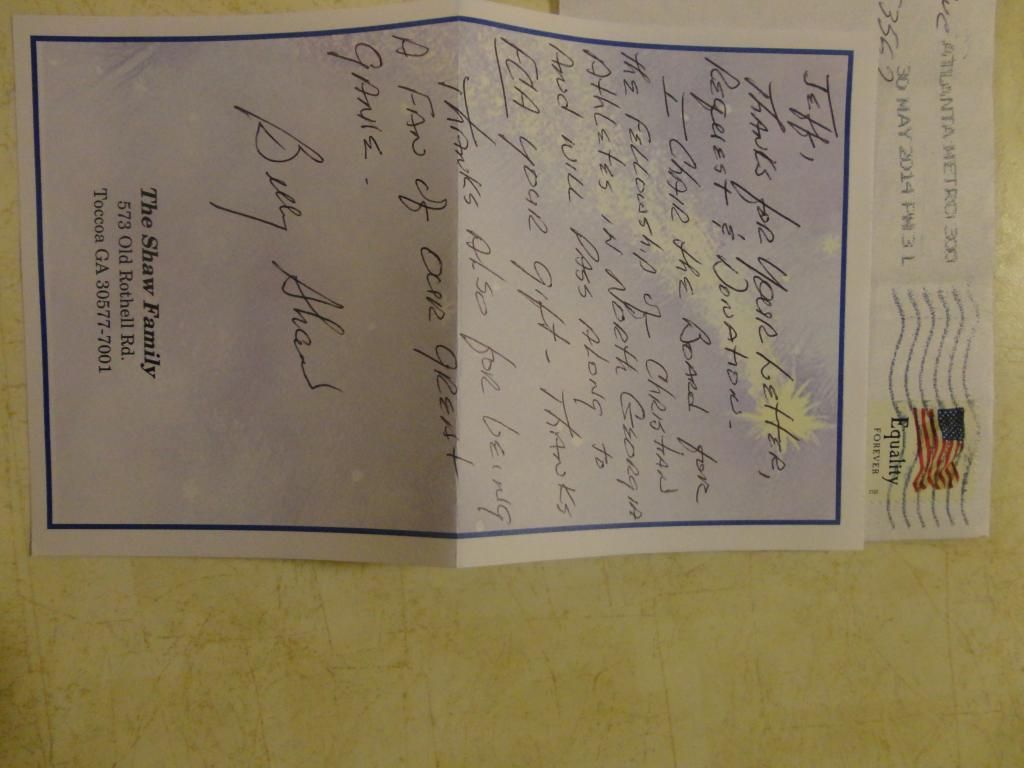 ATLANTA METRO 300
30 MAY 2014 PM 3 L
Equality
FOREVER
Jeff,
Thanks for your Letter,
Request & Donation -
I Chair the Board for
the Fellowship of Christian
Athletes in North Georgia
And will pass along to
FCA your gift - Thanks
Thanks Also for being
A FAN of our great
GAME -
Billy Shaw
The Shaw Family
573 Old Rothell Rd.
Toccoa GA 30577-7001